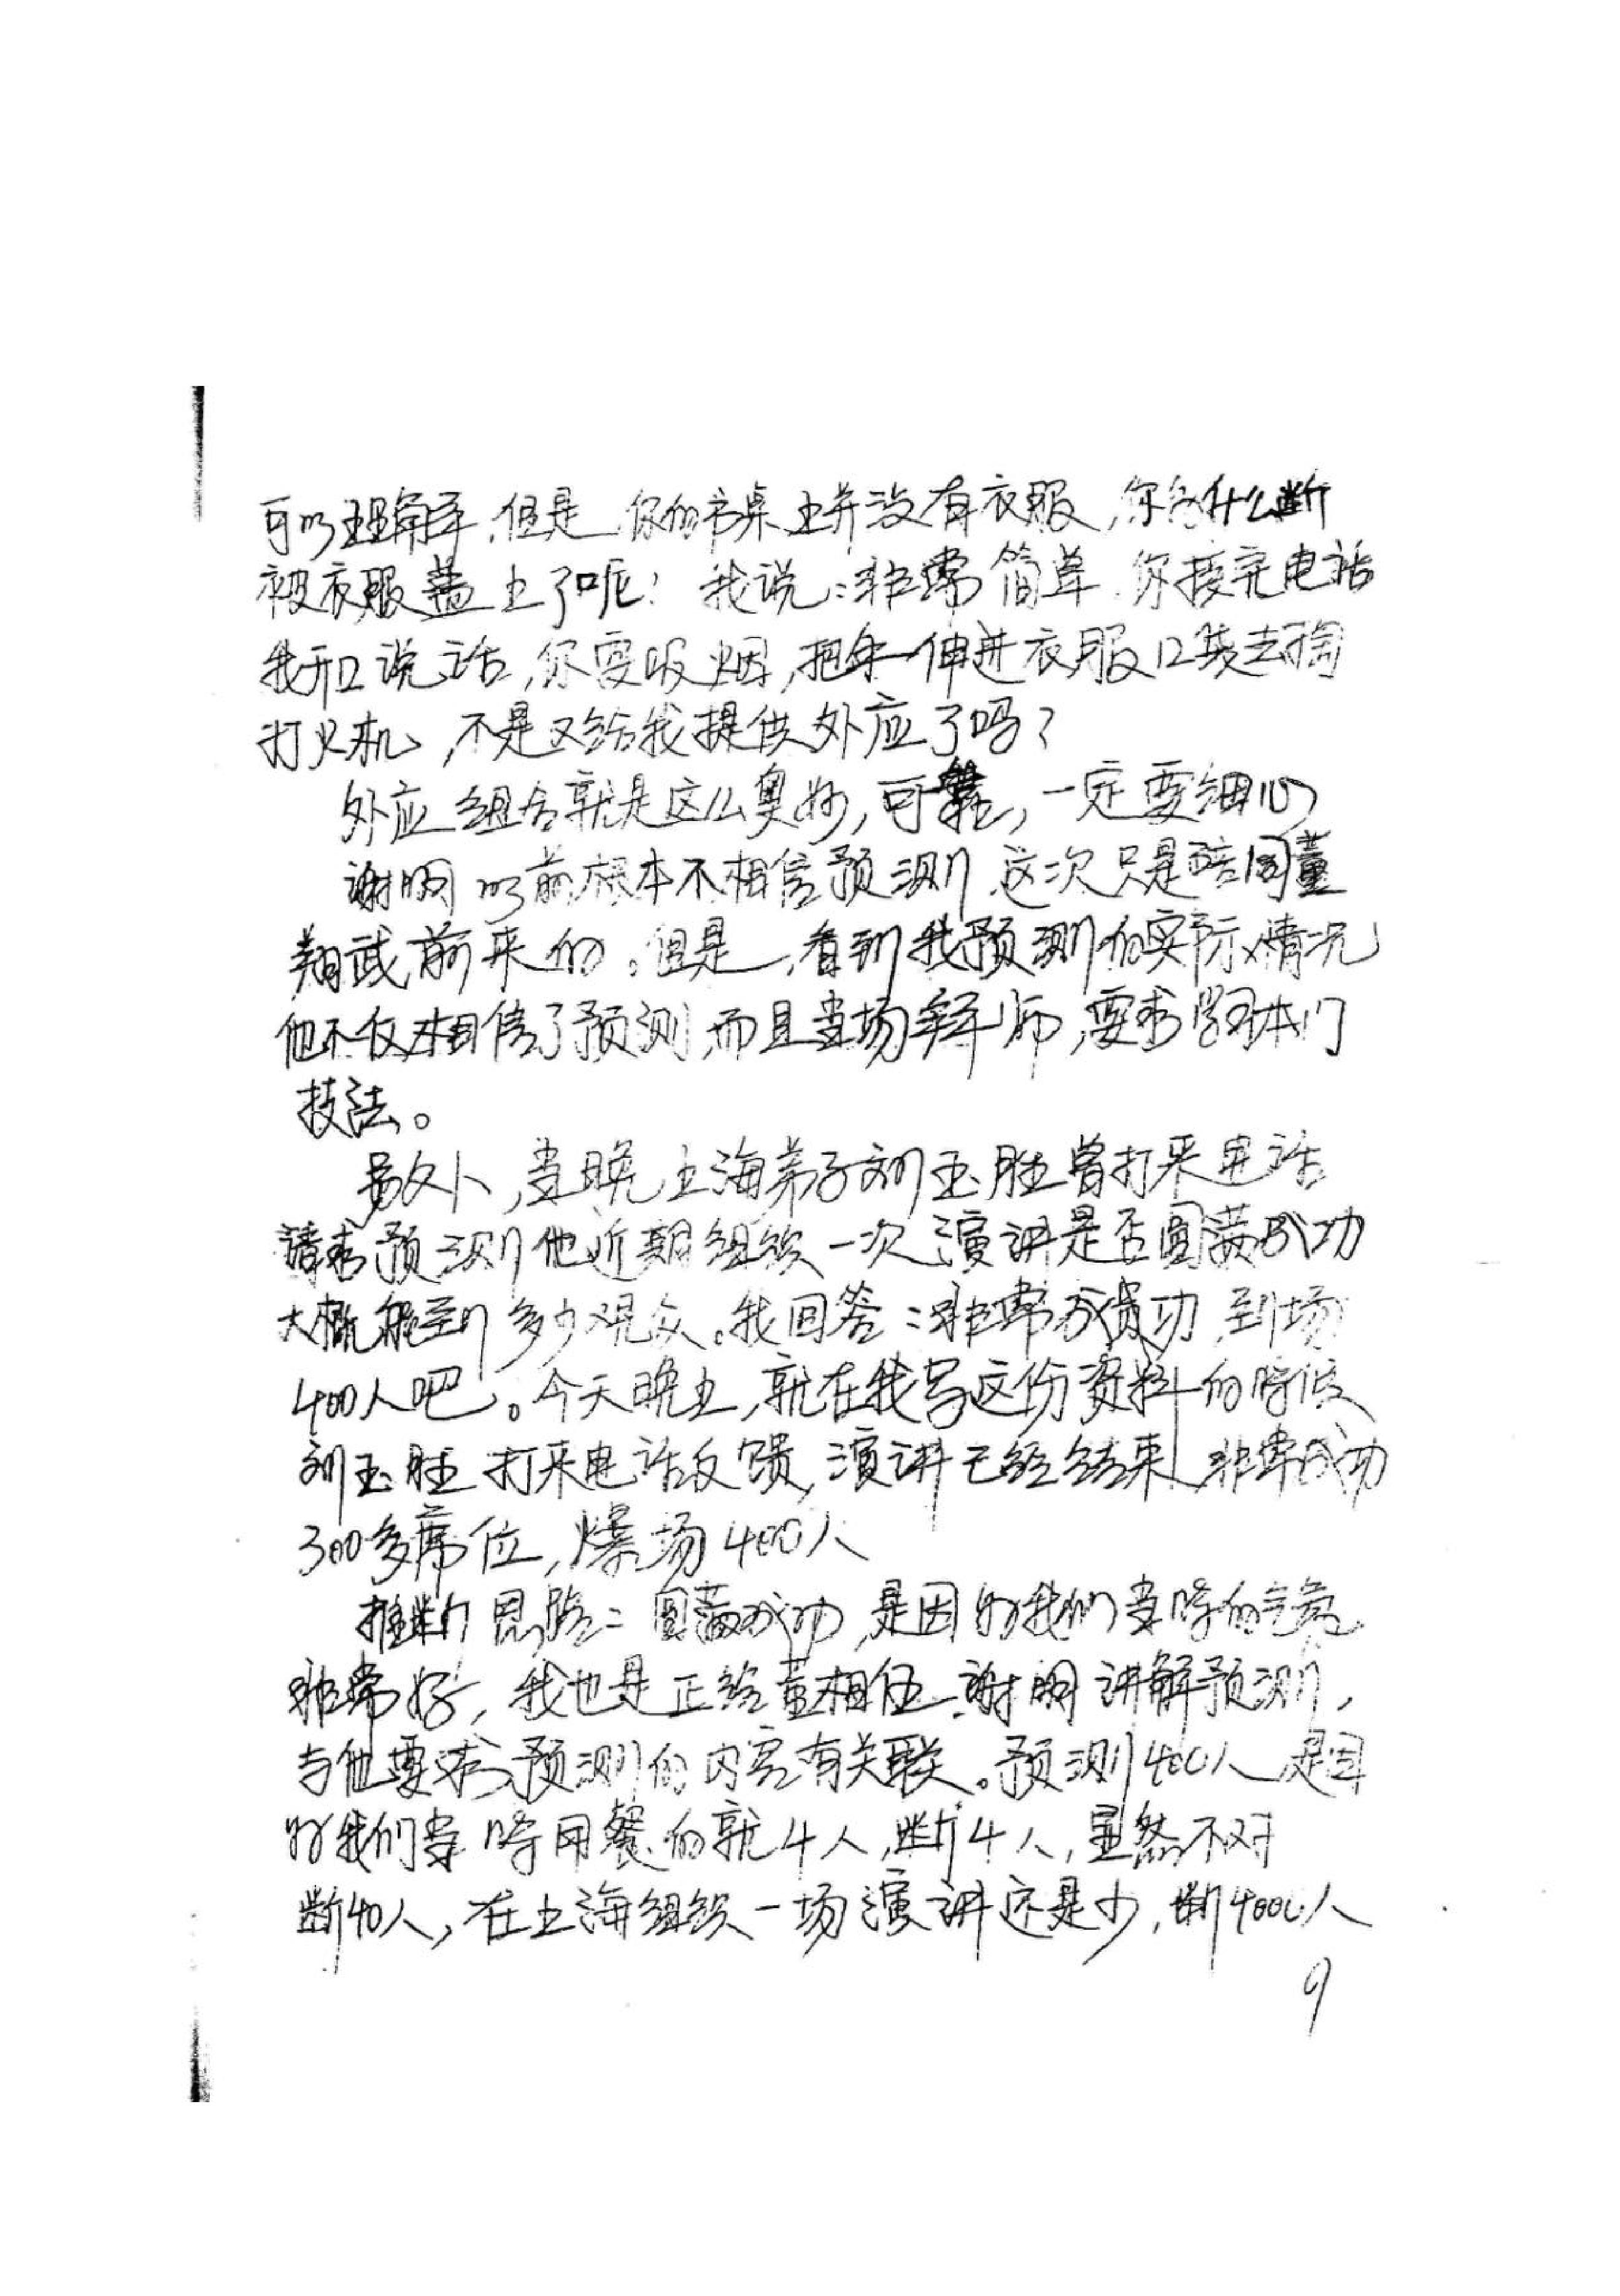 可以理解,但是,你的书桌上并没有衣服,你为什么断
被衣服盖上了呢!我说:非常简单,你接完电话
我开口说话,你要吸烟,把手伸进衣服口袋去掏
打火机,不是又给我提供外应了吗?
外应组合就是这么奥妙,可靠,一定要细心
谢明以前根本不相信预测,这次只是陪同董
翔武前来的。但是,看到我预测的实际情况
他不仅相信了预测,而且当场拜师,要求学习本门
技法。
另外,当晚上海弟子刘玉胜曾打来电话
请求预测他近期组织一次演讲是否圆满成功
大概能到多少观众。我回答:非常成功,到场
400人吧。今天晚上,就在我写这份资料的时候
刘玉胜打来电话反馈,演讲已经结束,非常成功
300多席位,爆场400人
推断思路:圆满成功,是因为我们当时的气氛
非常好,我也是正给董相伍、谢明讲解预测,
与他要求预测的内容有关联。预测400人是因
为我们当时用餐的就4人,断4人,显然不对
断40人,在上海组织一场演讲还是少,断4000人
9